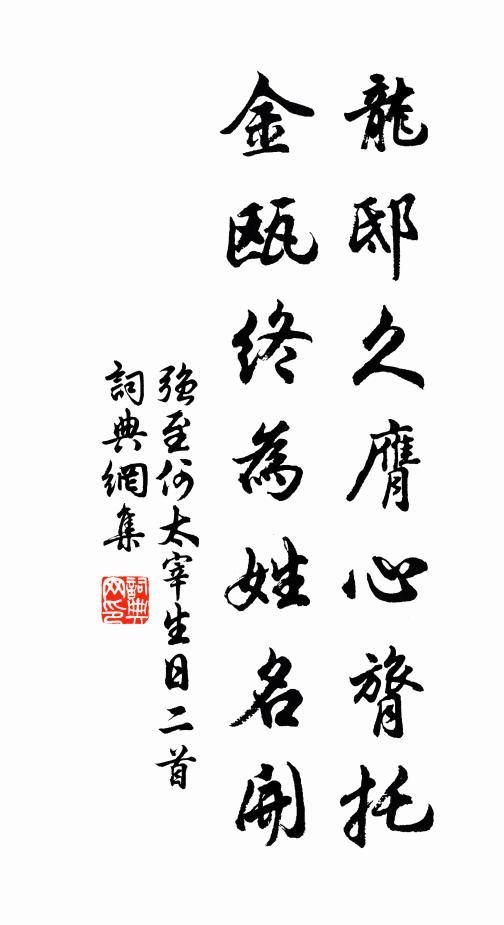 龍邸久膺心膂托
金甌終為姓名開
強至何太宰生日二首
詞典網集
詞典網印